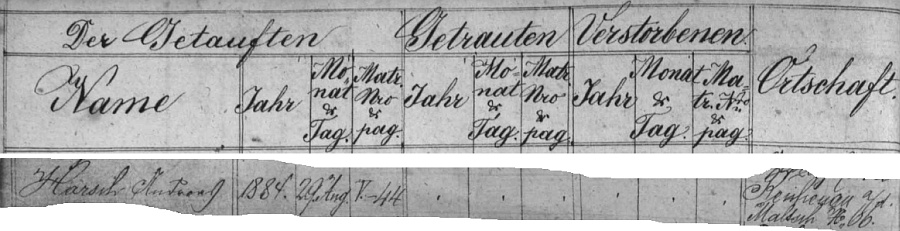 Der Getauften Getrauten Verstorbenen
Name Jahr Monat & Tag. Matr. Nro & pag. Jahr Monat & Tag. Matr. Nro & pag. Jahr Monat & Tag. Matr. Nro & pag. Ortschaft.
Harsch Andreas 1884. 29. Aug. V.-44
Maltsch No. 66.